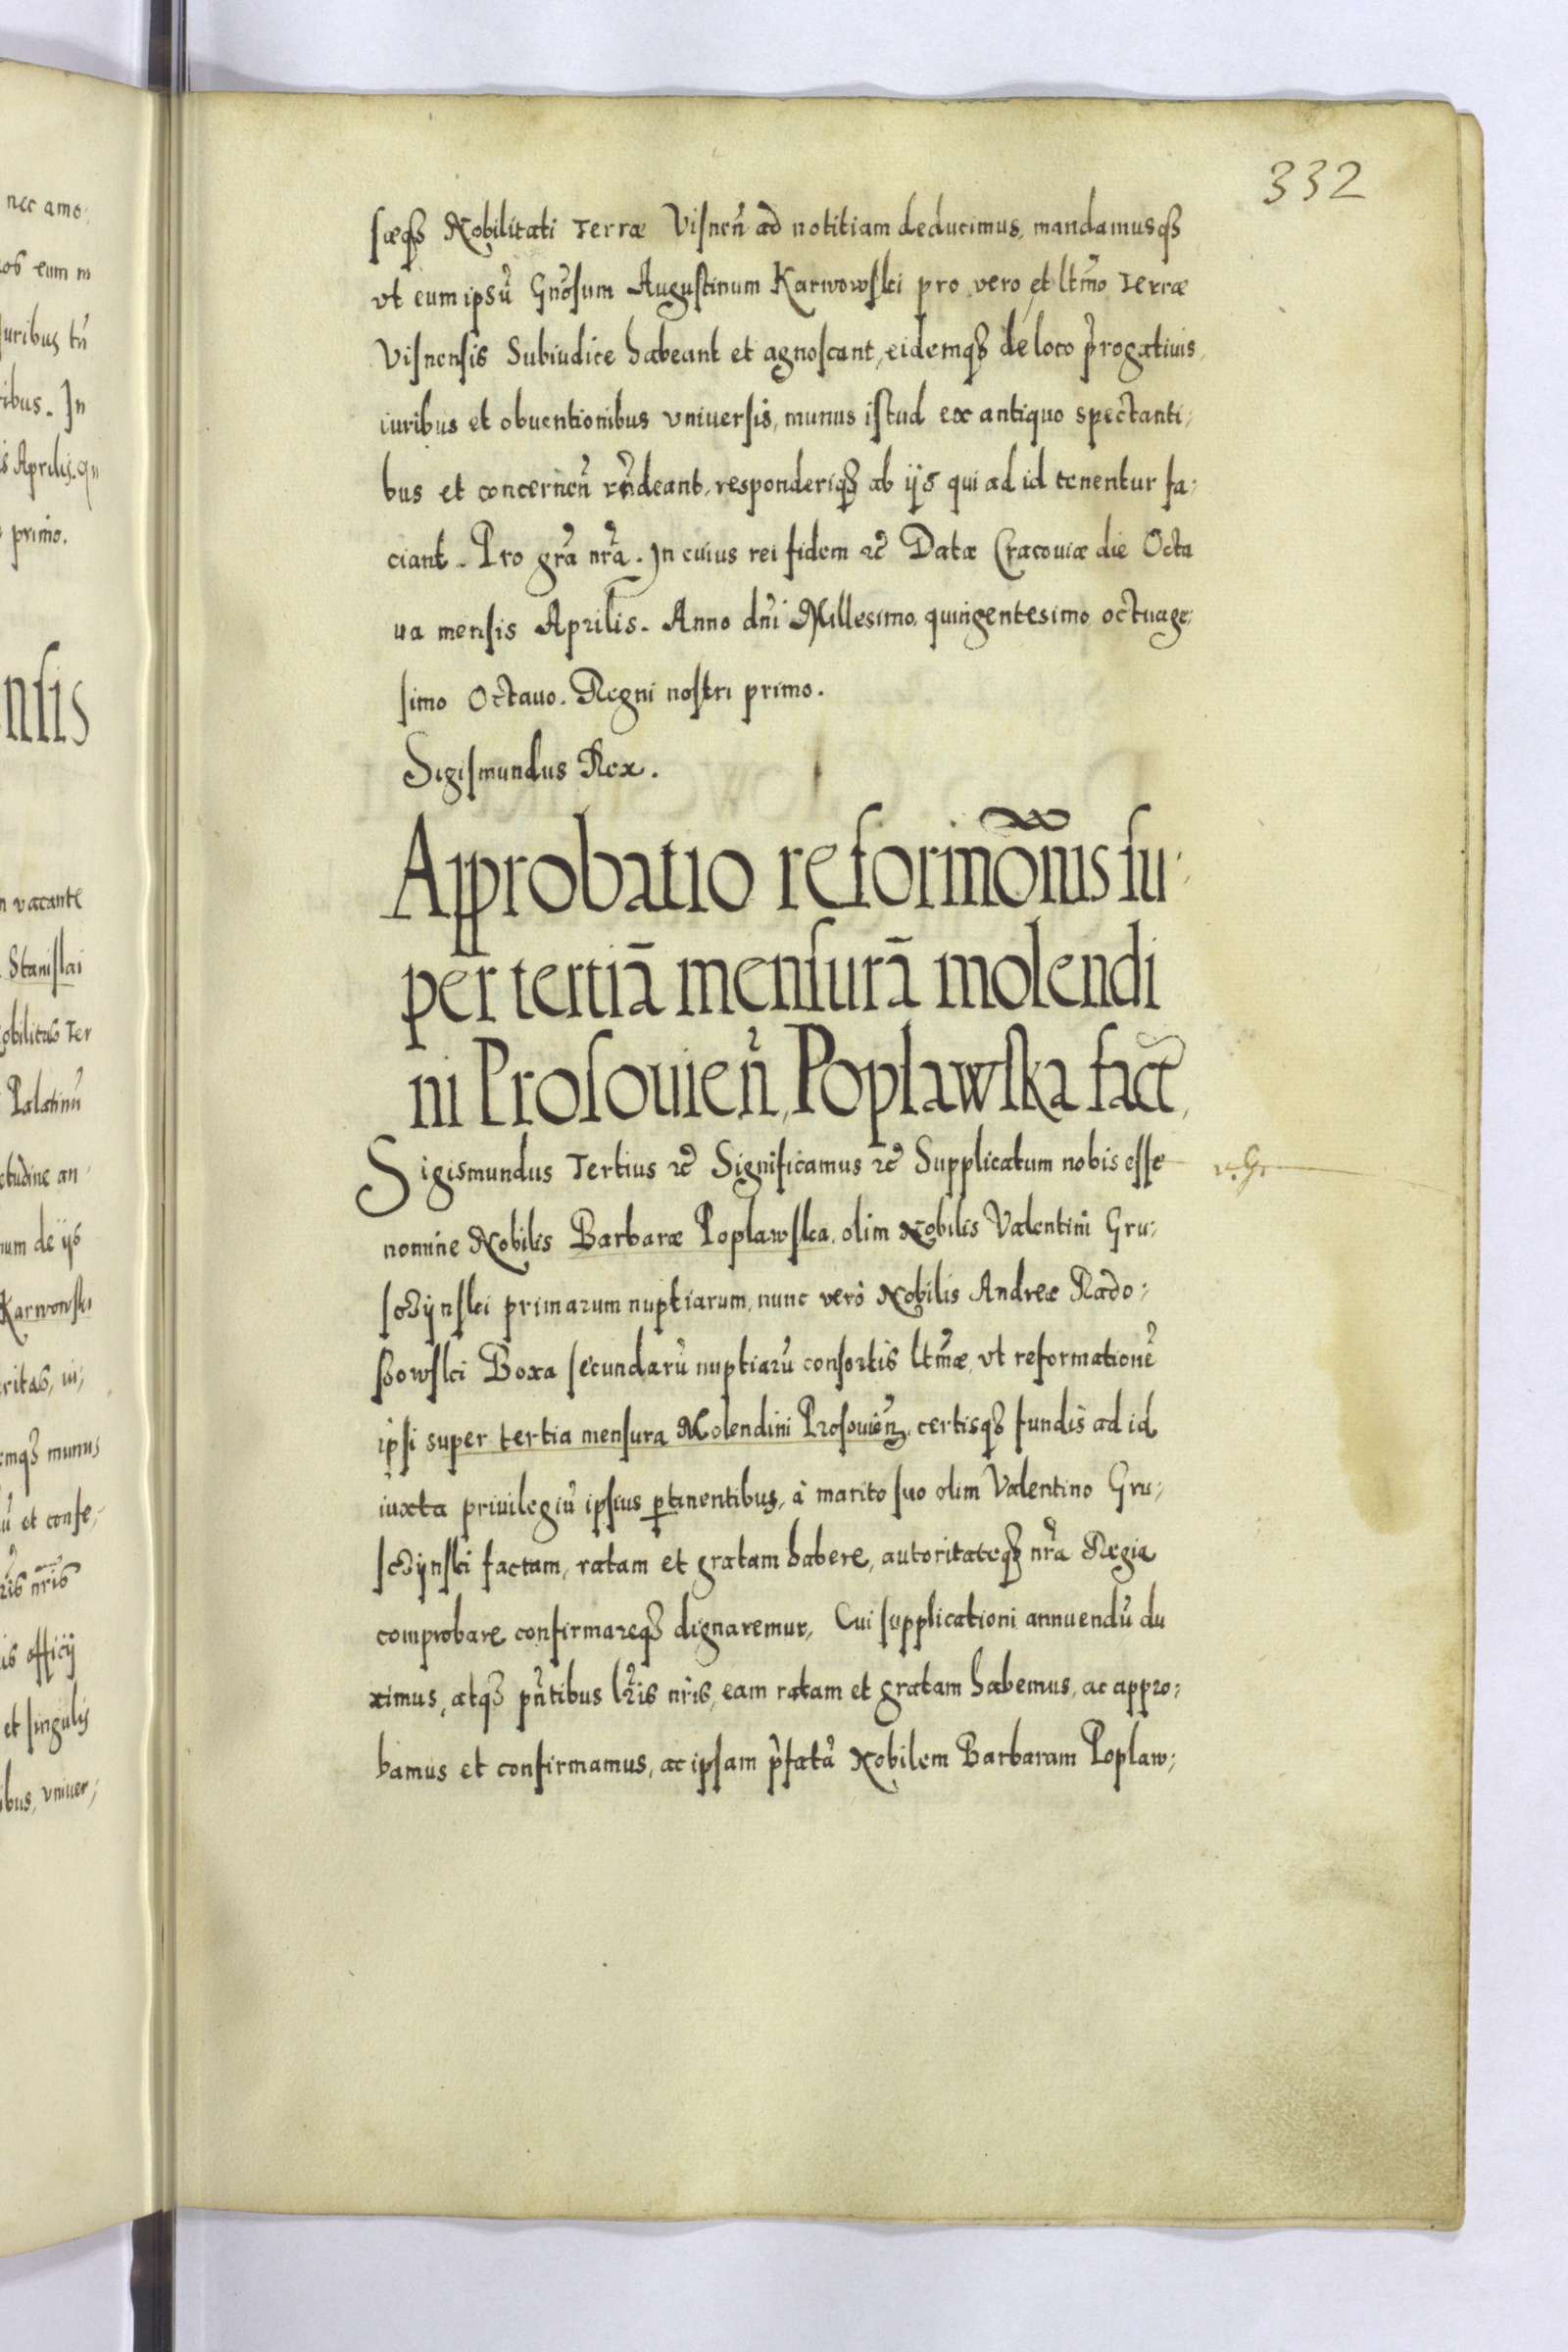 332
sæq3 Nobilitati Terræ Visneñ ad notitiam deducimus, mandamusq3
vt eum ipsũ Gñosum Augustinum Karwowski pro vero et ltm̃o Terræ
Visnensis Subiudice habeant et agnoscant, eidemq3 de loco p̃rogatiuis,
iuribus et obuentionibus vniuersis, munus istud ex antiquo spectanti,
bus et concerneñ rñdeant, responderiq3 ab ijs qui ad id tenentur fa,
ciant. Pro gr̃a nr̃a. In cuius rei fidem &c̃ Datæ Cracouiæ die Octa
ua mensis Aprilis. Anno dñi Millesimo quingentesimo octuage,
simo Octauo. Regni nostri primo.
Sigismundus Rex.
Approbatio reformõnis su,
per tertiã mensurã molendi
ni Prosouieñ, Poplawska fact̃,
Sigismundus Tertius &c̃ Significamus &c̃ Supplicatum nobis esse
nomine Nobilis Barbaræ Poplawska, olim Nobilis Valentini Gru,
sczijnski primarum nuptiarum, nunc verò Nobilis Andreæ Rado,
ssowski Boxa secundarũ nuptiarũ consortis ltm̃æ, vt reformationẽ
ipsi super tertia mensura Molendini Prosouieñ, certisq3 fundis ad id
iuxta priuilegiũ ipsius ptinentibus, à marito suo olim Valentino Gru,
sczijnski factam, ratam et gratam habere, autoritateq3 nr̃a Regia
comprobare confirmareq3 dignaremur, Cui supplicationi annuendũ du
ximus, atq3 pñtibus lr̃is nr̃is, eam ratam et gratam habemus, ac appro,
bamus et confirmamus, ac ipsam p̃fatã Nobilem Barbaram Poplaw,